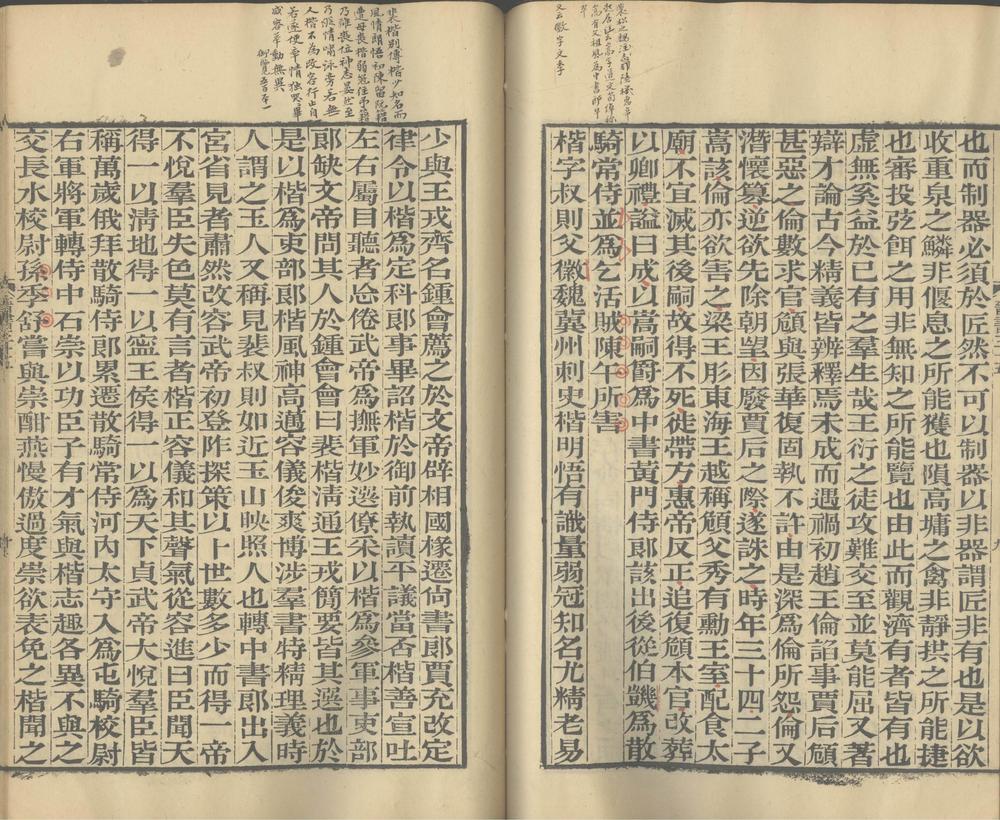 也而制器必須於匠然不可以制器以非器謂匠非有也是以欲
收重泉之鱗非偃息之所能獲也隕高墉之禽非靜拱之所能捷
也審投弦餌之用非無知之所能覽也由此而觀濟有者皆有也
虛無奚益於已有之羣生哉王衍之徒攻難交至並莫能屈又著
辯才論古今精義皆辨釋焉未成而遇禍初趙王倫諂事賈后頠
甚惡之倫數求官頠與張華復固執不許由是深爲倫所怨倫又
潛懷篡逆欲先除朝望因廢賈后之際遂誅之時年三十四二子
嵩該倫亦欲害之梁王肜東海王越稱頠父秀有勳王室配食太
廟不宜滅其後嗣故得不死徙帶方惠帝反正追復頠本官改葬
以卿禮諡曰成以嵩嗣爵爲中書黃門侍郎該出後從伯黻爲散
騎常侍並爲乞活賊陳午所害
楷字叔則父徽魏冀州刺史楷明悟有識量弱冠知名尤精老易
少與王戎齊名鍾會薦之於文帝辟相國椽遷尙書郎賈充改定
律令以楷爲定科郎事畢詔楷於御前執讀平議當否楷善宣吐
左右屬目聽者忘倦武帝爲撫軍妙選僚采以楷爲參軍事吏部
郎缺文帝問其人於鍾會會曰裴楷淸通王戎簡要皆其選也於
是以楷爲吏部郎楷風神高邁容儀俊爽博涉羣書特精理義時
人謂之玉人又稱見裴叔則如近玉山映照人也轉中書郎出入
宮省見者肅然改容武帝初登阼探策以卜世數多少而得一帝
不悅羣臣失色莫有言者楷正容儀和其聲氣從容進曰臣聞天
得一以淸地得一以寍王侯得一以爲天下貞武帝大悅羣臣皆
稱萬歲俄拜散騎侍郎累遷散騎常侍河內太守入爲屯騎校尉
右軍將軍轉侍中石崇以功臣子有才氣與楷志趣各異不與之
交長水校尉孫季舒嘗與崇酣燕慢傲過度崇欲表免之楷聞之
裴楷別傳楷少知名而
風情朗悟初陳留阮籍
遭母喪楷弱冠往弔籍
乃離喪位神志晏然至
乃縱情嘯詠旁若無
人楷不為改容行止自
若遂便率情独哭畢
威容舉動無異